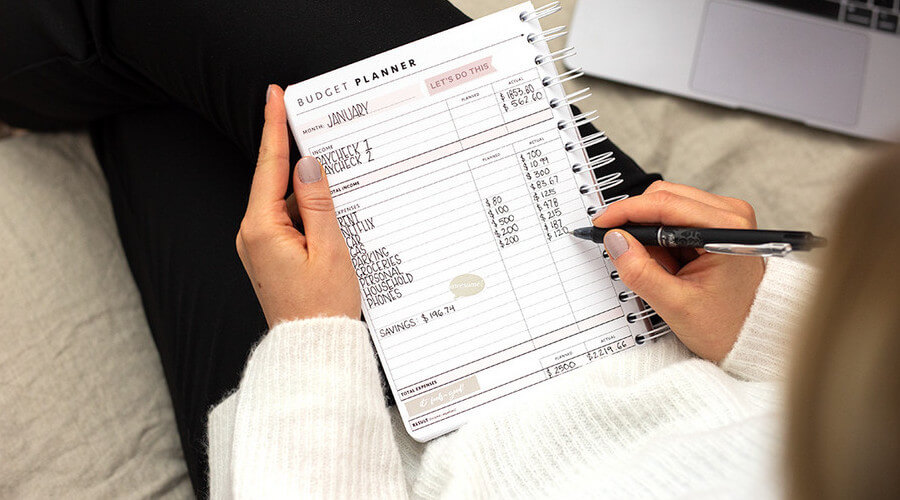 BUDGET PLANNER
LET'S DO THIS
MONTH: JANUARY
PLANNED ACTUAL
INCOME $1853.60
PAYCHECK 1 $562.10
PAYCHECK 2
TOTAL INCOME
PLANNED ACTUAL
EXPENSES $700
RENT $10.99
NETFLIX $300
CAR $80 $83.67
GAS $100
PARKING $500 $478
GROCERIES $200 $215
PERSONAL $200 $187
HOUSEHOLD $120
PHONES
awesome
SAVINGS: $196.74
PLANNED ACTUAL
TOTAL EXPENSES $2500 $2219.66
RESULT